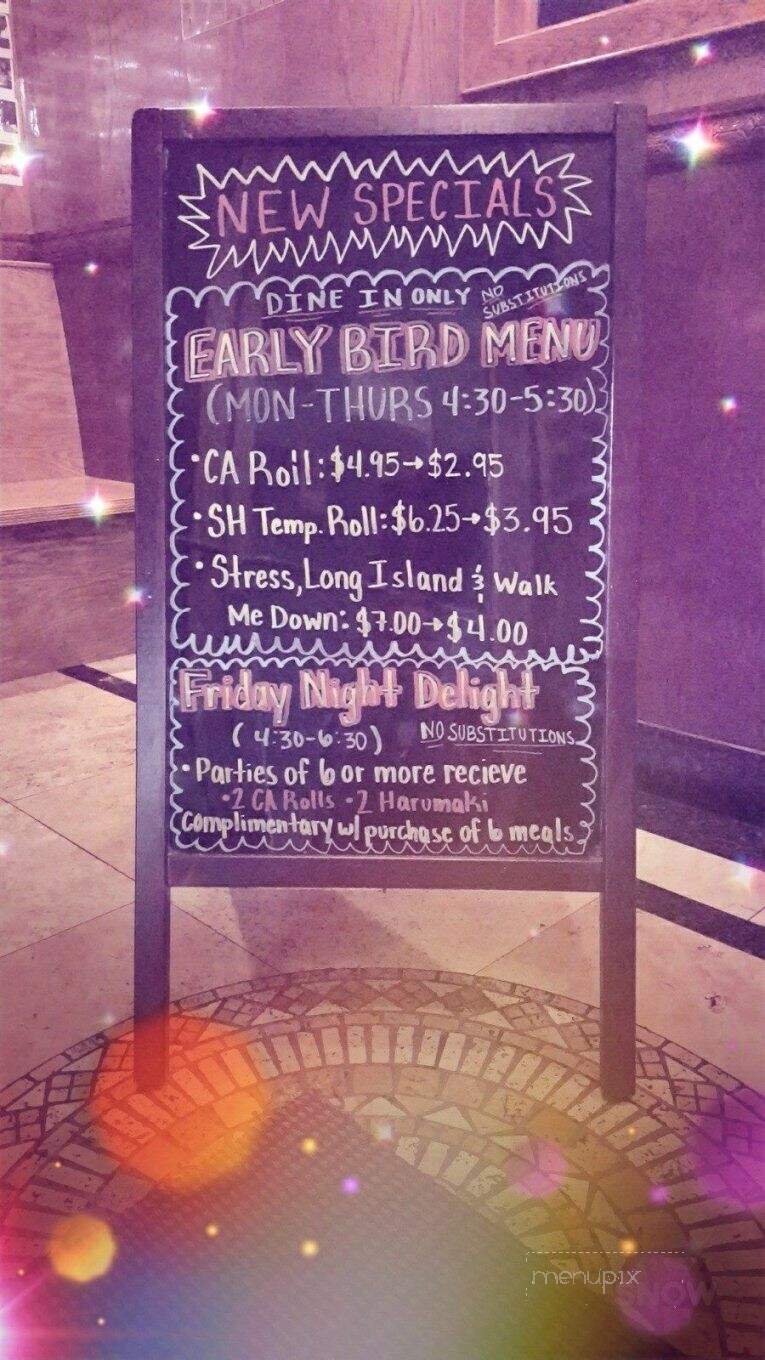 NEW SPECIALS
DINE IN ONLY NO SUBSTITUTIONS
EARLY BIRD MENU
(MON-THURS 4:30-5:30)
• CA Roll: $4.95→$2.95
• SH Temp. Roll: $6.25→$3.95
• Stress, Long Island & Walk
Me Down: $7.00→$4.00
Friday Night Delight
(4:30-6:30) NO SUBSTITUTIONS
• Parties of 6 or more recieve
• 2 CA Rolls • 2 Harumaki
complimentary w/ purchase of 6 meals
menupix